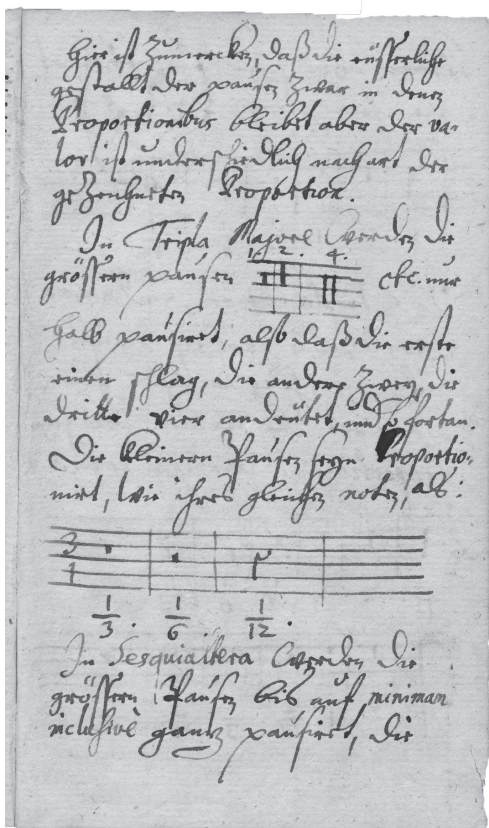 Hier ist Zumercken, daß die eüsserliche
gestallt der pausen Zwar in denen
Proportionibus bleibet aber der va-
lor ist underschiedlich nach art der
geZeichneten Proportion.
In Tripla Majore werden die
1. 2. 4.
grössern pausen etc. nur
halb pausiret, also daß die erste
einen schlag, die andere Zwey, die
dritte vier andeütet, und so fortan.
Die kleinern Pausen seyn Proportio-
nirt, wie ihres gleichen noten, als:
3
1
1/3. 1/6. 1/12.
In Sesquialtera werden die
grössern Pausen bis auf minimam
inclusivè gantz pausiret, die